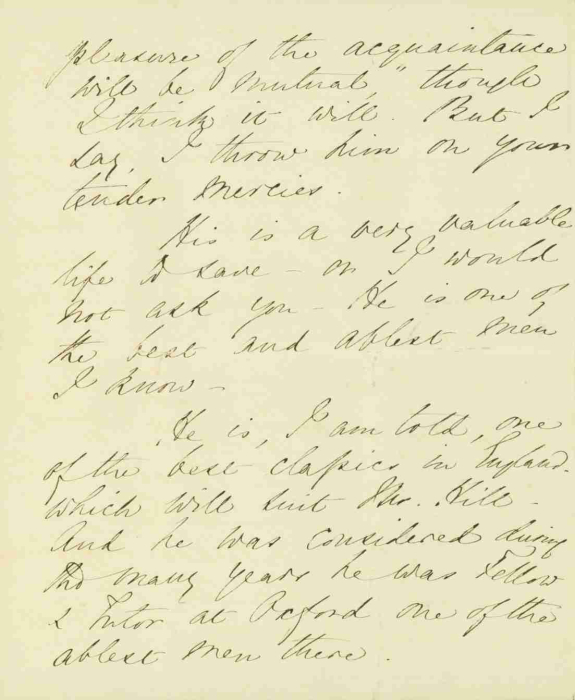 pleasure of the acquaintance
will be mutual," though
I think it will. But I
say, I throw him on your
tender mercies.
His is a very valuable
life to save - or I would
not ask you - He is one of
the best and ablest men
I know -
He is, I am told, one
of the best classics in England.
which will suit Mr. Hill -
And he was considered during
the many years he was Fellow
& Tutor at Oxford one of the
ablest men there.